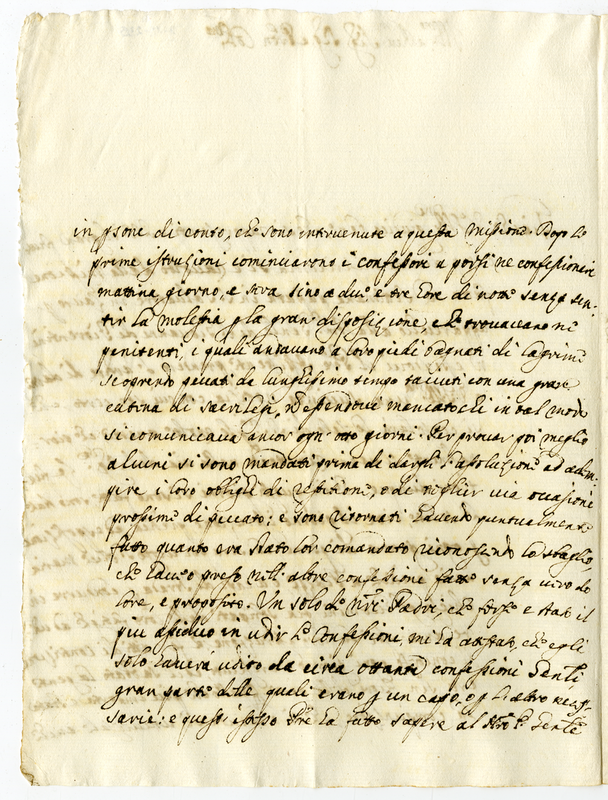 in psone di conto, che sono intervenute a questa Missione. Dopo le
prime istruzioni cominciarono i confessori a porsi ne confessionari
mattina, giorno, e sera sino a due e tre hore di notte senza sen-
tir la molestia p la gran disposizione, che trovavano ne
penitenti, i quali andavano a loro piedi bagnati di lagrime
scoprendo peccati da lunghissimo tempo taciuti con una grave
catena di sacrilegi, non essendovi mancato chi in tal modo
si comunicava ancor ogn' otto giorni. Per provar poi meglio
alcuni si sono mandati prima di dargli l'assoluzione ad adem-
pire i loro oblighi di restitione, o di toglier via occasioni
prossime di peccato; e sono ritornati havendo puntualmente
fatto quanto era stato lor comandato riconoscendo lo sbaglio,
che haveano preso nell' altre confessioni fatte senza vero do
lore, e proposito. Un solo de nri Padri, che forse è stato il
piu assiduo in udir le Confessioni, mi ha attestato, che egli
solo haverà udito da circa ottanta confessioni Genli
gran parte delle quali erano p un capo, o p l'altro neces-
sarie: e questo istesso Pre ha fatto sapere al Nro P. Genle